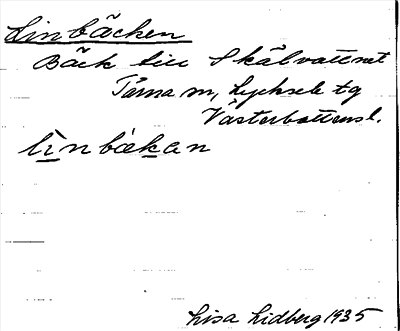 Linbäcken
Bäck till Skälvattnet
Tärna sn, Lycksele tg
Västerbottensl.
lìnbäkan
Lisa Lidberg 1935